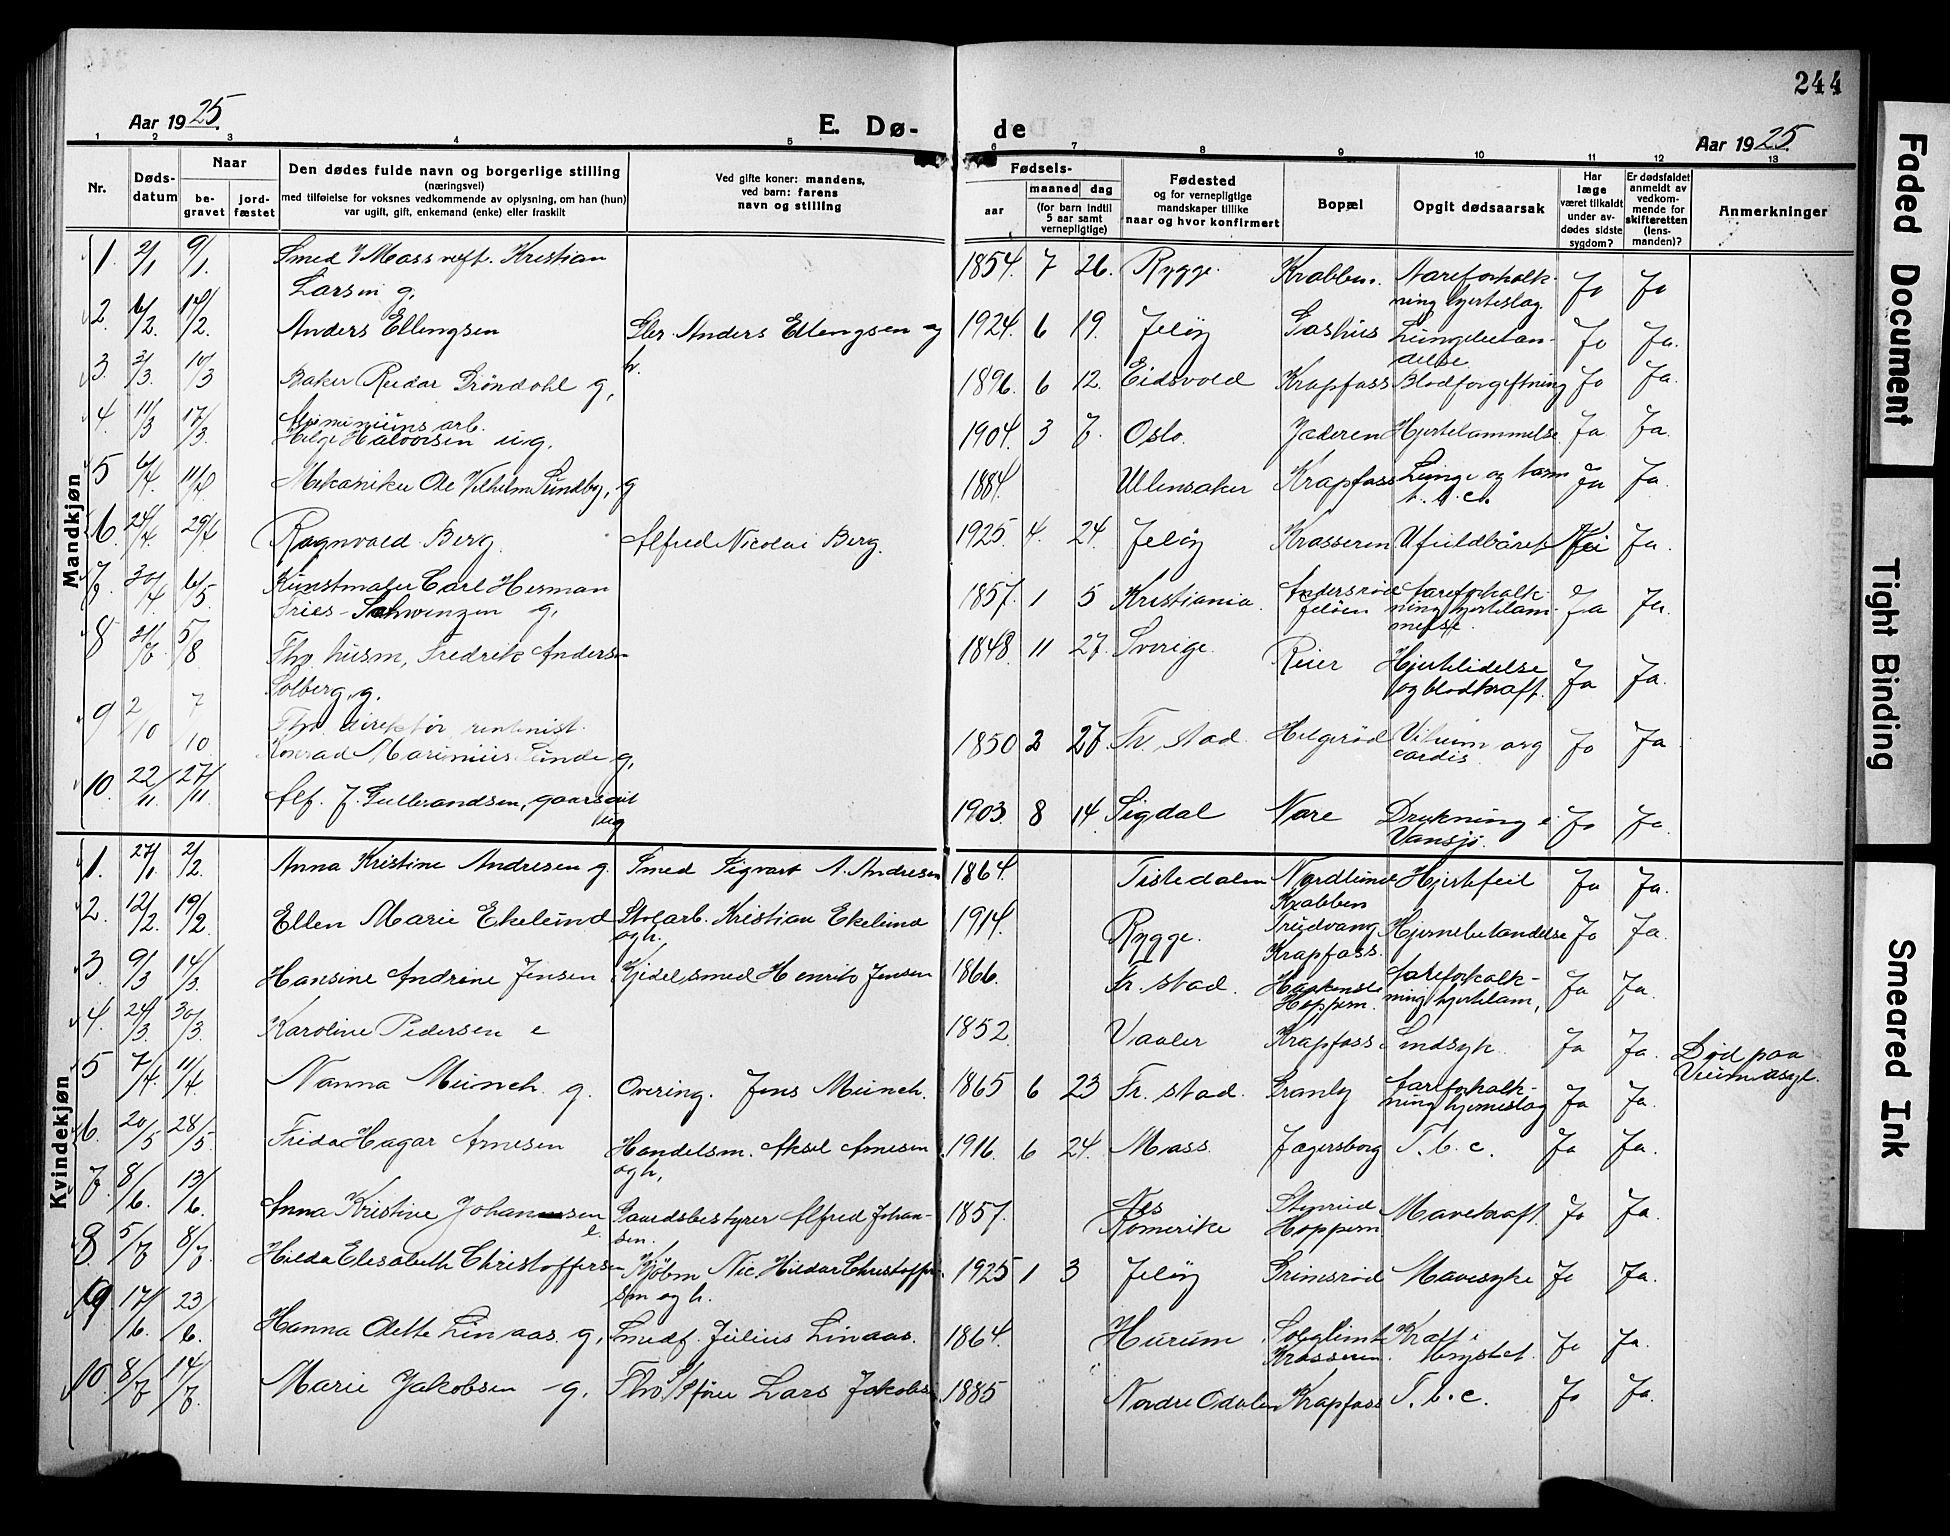 244
Aar 1925.
E. Dø-
de
Aar 1925.
1 2 3 4 5 6 7 8 9 10 11 12 13
Nr.
Døds-
datum
Naar
be-
gravet
jord-
fæstet
Den dødes fulde navn og borgerlige stilling
(næringsvei)
med tilføielse for voksnes vedkommende av oplysning, om han (hun)
var ugift, gift, enkemand (enke) eller fraskilt
Ved gifte koner: mandens,
ved barn: farens
navn og stilling
Fødsels-
aar
maaned
dag
(for barn indtil
5 aar samt
vernepligtige)
Fødested
og for vernepligtige
mandskaper tillike
naar og hvor konfirmert
Bopæl
Opgit dødsaarsak
Har
læge
været tilkaldt
under av-
dødes sidste
sygdom?
Er dødsfaldet
anmeldt av
vedkom-
mende for
skifteretten
(lens-
manden)?
Anmerkninger
Mandkjøn
1. 2/1 9/1. Smed Kristian
Larsen g. 1854. 7 26. Rygge. Krabben. Aareforkalk-
ning hjerteslag. Ja Ja
2. 6/2. 14/2. Anders Ellingsen Anders Ellingsen og
h. 1924. 6 19. Jeløy Gashus Lungebetæn-
delse Ja Ja.
3. 3/3. 10/3 Baker Reidar Grøndahl g, 1896. 6 12. Eidsvold Krapfoss Blodforgiftning Ja Ja.
4. 11/3 17/3. Aluminiums arb.
Helge Halvorsen ug. 1904. 3 7. Oslo. Jæderen Hjertelammelse Ja Ja.
5 6/4. 11/4 Mekaniker Ole Vilhelm Sundby, g 1884. Ullensaker Krapfoss Lunge og tarm
t.b.c. Ja Ja.
6. 24/4. 29/4 Ragnvald Berg. Alfred Nicolai Berg. 1925. 4. 24. Jeløy Krosseren Ufuldbåret Nei Ja.
7 30/4 6/5. Kunstmaler Carl Herman
Fries-Schwenzen g, 1857. 1 5 Kristiania. Andersrød
Jeløen Aareforkalk-
ning hjertelam-
melse. Ja Ja.
8 31/7. 5/8 Fhv. husm, Fredrik Anders
Solberg, g. 1848. 11 27. Sverige. Reier Hjertelidelse
og blodkraft. Ja Ja.
9 2/10 7/10. Fhv. direktør, rentenist.
Konrad Marinius Lunde g, 1850 2 27 Fr. stad. Helgerød Vitium org
cordis. Ja Ja
10. 22/11. 27/11 Alf. J. Gulbrandsen, gaardsarb
ug 1903. 8 14. Sigdal Nore Drukning i
Vansjø. Ja Ja.
Kvindekjøn
1. 27/1. 2/2. Anna Kristine Andresen g. Smed Sigvart A. Andresen 1864. Tistedalen Nordlund
Krabben Hjertefeil Ja Ja.
2. 12/2. 19/2. Ellen Marie Ekelund Stolarb. Kristian Ekelund
og h. 1914. Rygge. Trudvang
Krapfoss. Hjernebetændelse Ja Ja.
3. 9/3 14/3. Hansine Andrine Jensen Kjedelsmed Henrik Jensen 1866. Fr. stad.
Hoppern. Aareforkalk-
ning hjertelam, Ja Ja.
4. 24/3. 30/3. Karoline Pedersen e 1852. Vaaler Krapfoss Sindsyk. Ja Ja. Død paa
Veum asyl.
5 7/4. 11/4 Nanna Münch. g. Overing. Jens Münch. 1865 6 23 Fr. stad. Granly Aareforkalk-
ning hjerneslag Ja Ja.
6. 20/5 28/5. Frida Hagar Arnesen Handelsm. Aksel Arnesen
og h, 1916. 6 24. Moss. Jægersborg T.b.c. Ja Ja.
7. 8/6. 13/6. Anna Kristine Johannesen
e. Gaardsbestyrer Alfred Johan-
sen. 1857. Nes
Romerike Stenrud
Hoppern Mavekraft. Ja Ja.
8. 5/7 8/7. Hilda Elisabeth Christoffersen Kjøbm Nic. Hildar Christoffer-
sen og h. 1925 1 3 Jeløy Grimsrød Mavesyke Ja Ja.
9 17/6. 23/6. Hanna Odette Linaas. g, Smedf. Julius Linaas. 1864. Hurum Solglimt
Krosseren. Kræft i
brystet. Ja Ja.
10. 8/7 14/7. Marie Jakobsen g, Lars Jakobs 1885 Nordre Odalen Krapfoss T.b.c. Ja Ja.
Faded Document
Tight Binding
Smeared Ink